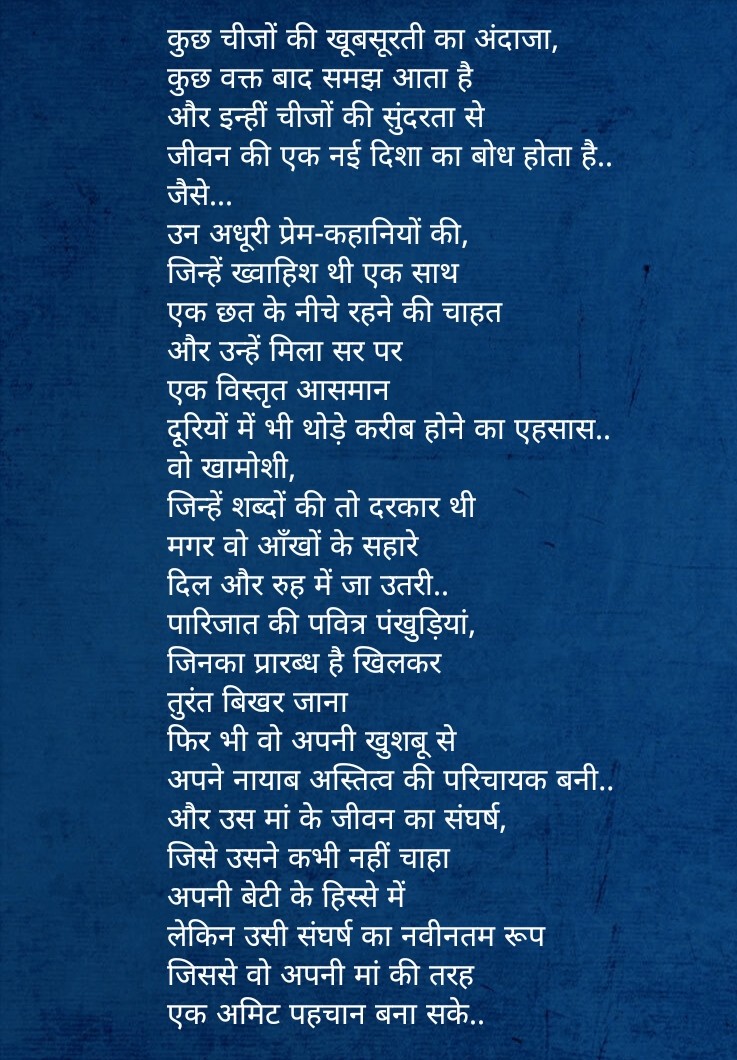 कुछ चीजों की खूबसूरती का अंदाजा,
कुछ वक्त बाद समझ आता है
और इन्हीं चीजों की सुंदरता से
जीवन की एक नई दिशा का बोध होता है..
जैसे...
उन अधूरी प्रेम-कहानियों की,
जिन्हें ख्वाहिश थी एक साथ
एक छत के नीचे रहने की चाहत
और उन्हें मिला सर पर
एक विस्तृत आसमान
दूरियों में भी थोड़े करीब होने का एहसास..
वो खामोशी,
जिन्हें शब्दों की तो दरकार थी
मगर वो आँखों के सहारे
दिल और रुह में जा उतरी..
पारिजात की पवित्र पंखुड़ियां,
जिनका प्रारब्ध है खिलकर
तुरंत बिखर जाना
फिर भी वो अपनी खुशबू से
अपने नायाब अस्तित्व की परिचायक बनी..
और उस मां के जीवन का संघर्ष,
जिसे उसने कभी नहीं चाहा
अपनी बेटी के हिस्से में
लेकिन उसी संघर्ष का नवीनतम रूप
जिससे वो अपनी मां की तरह
एक अमिट पहचान बना सके..